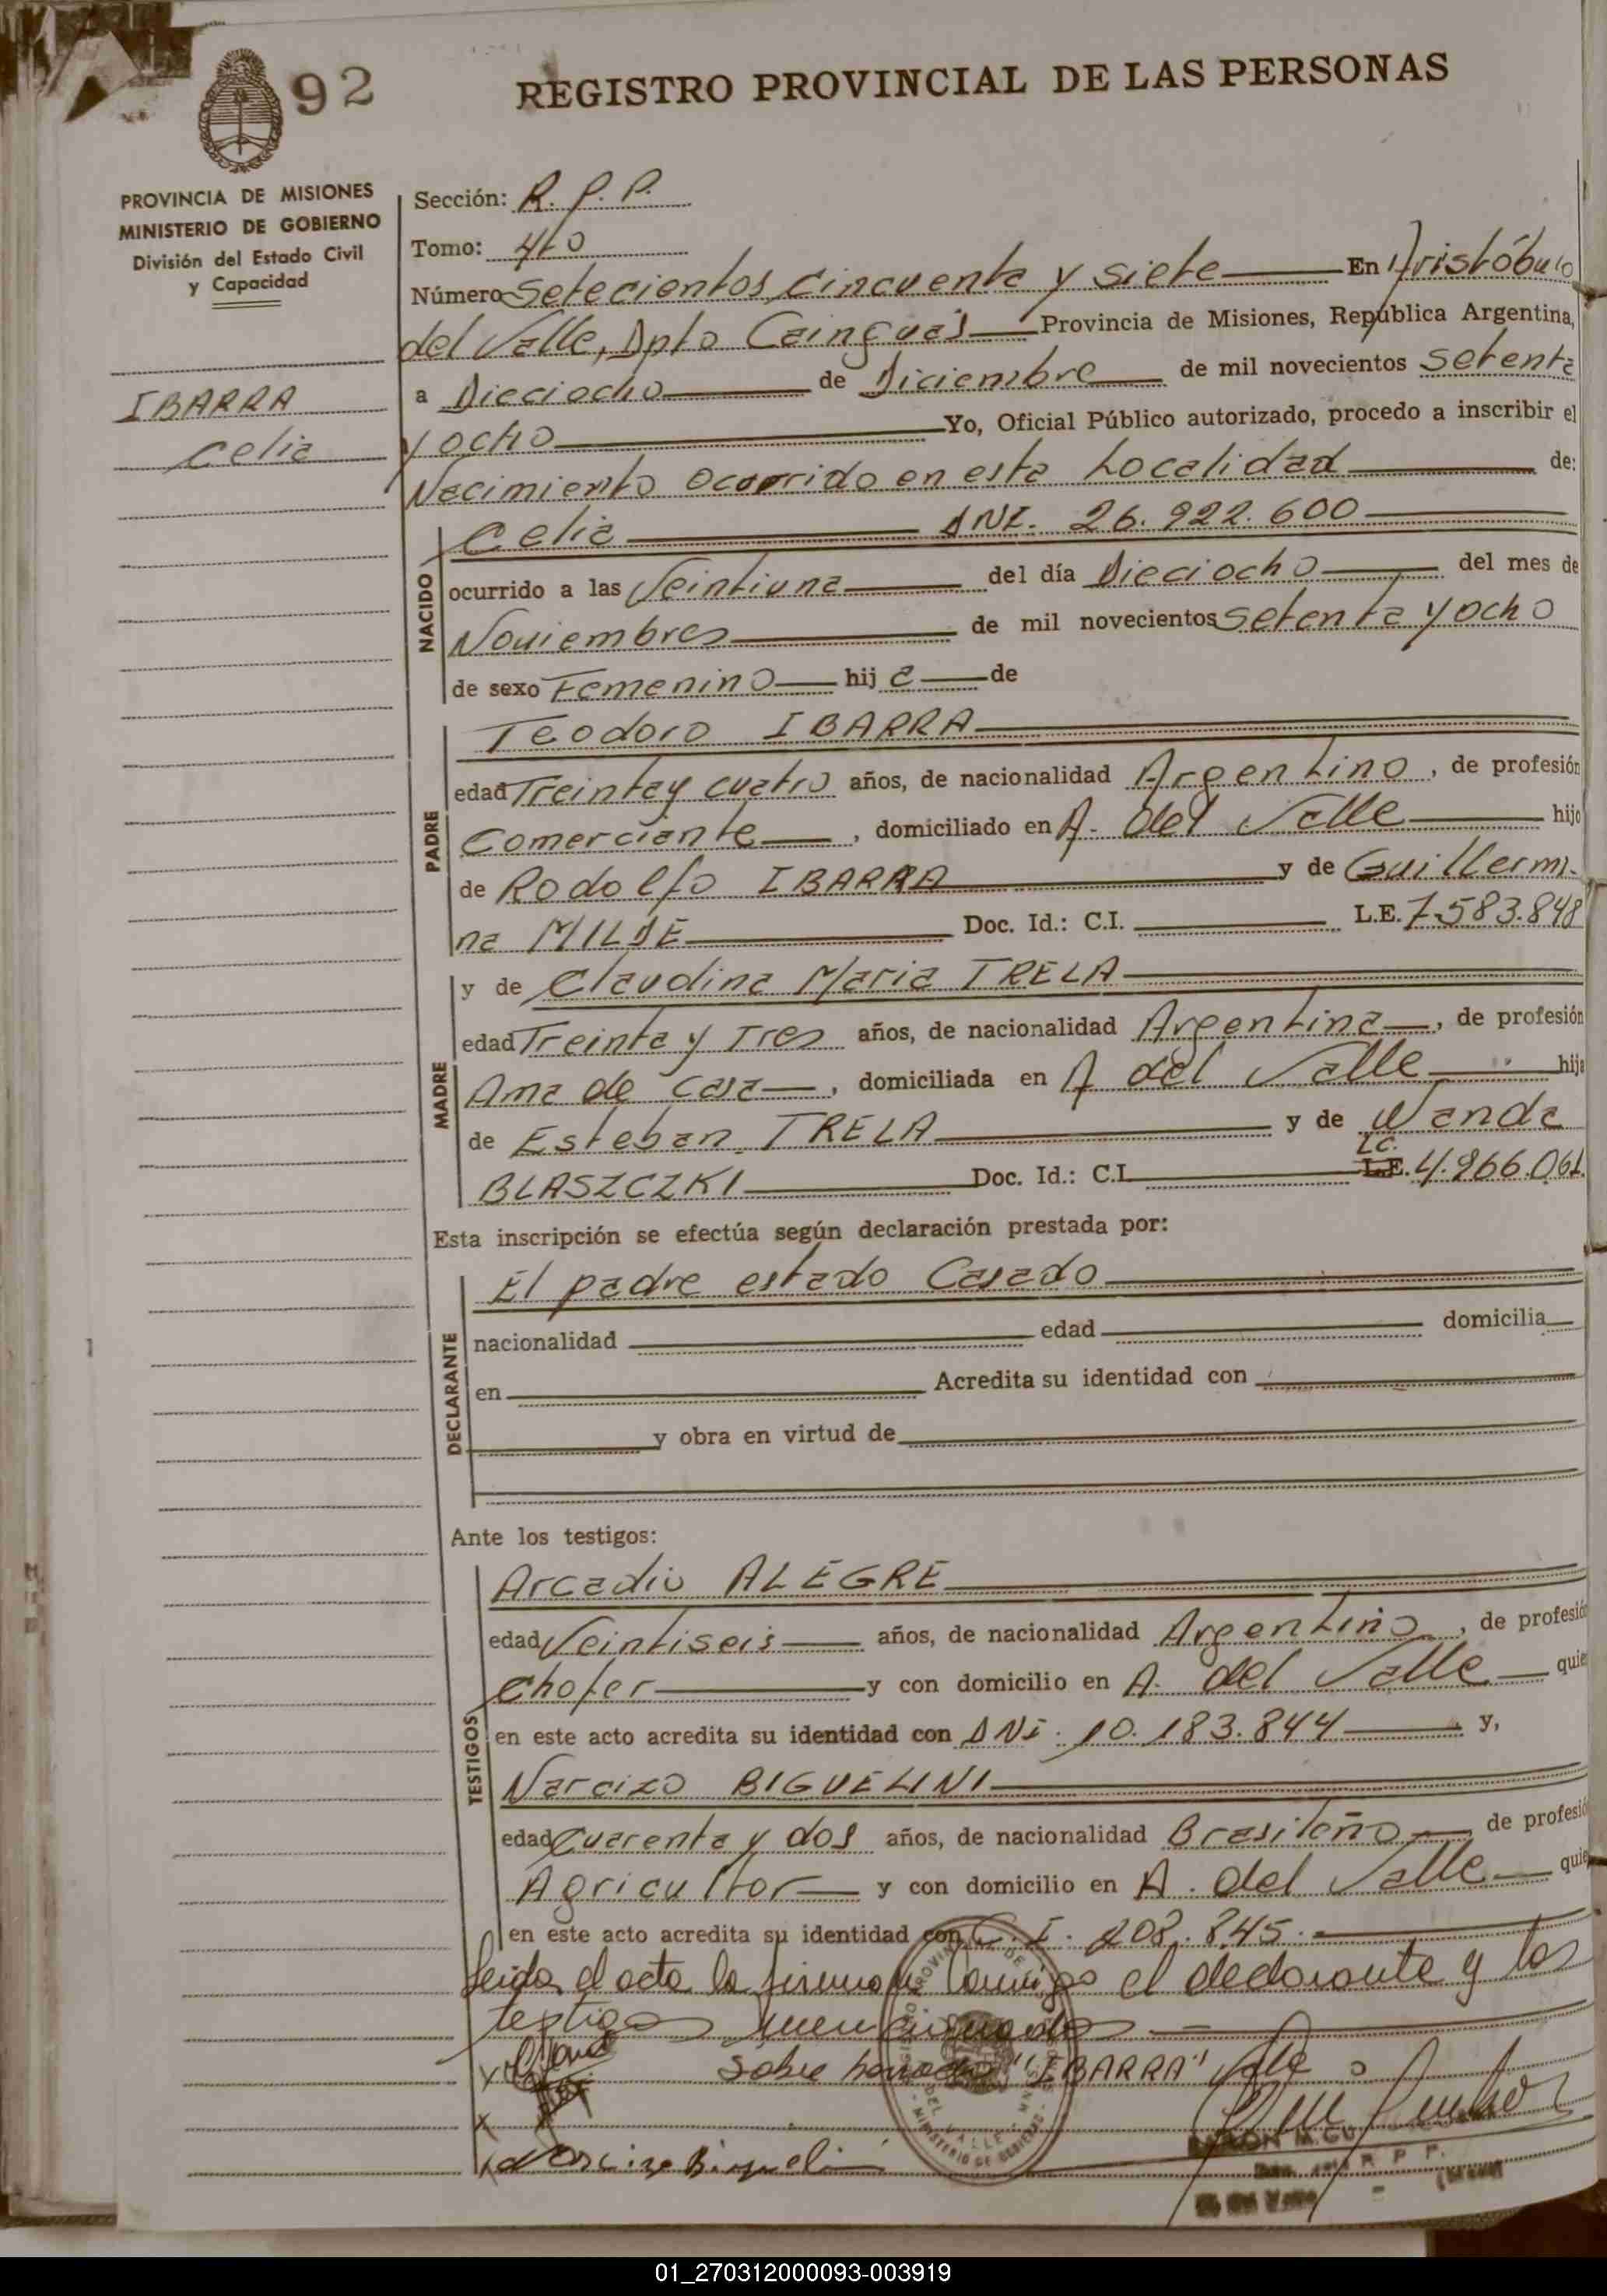 92
REGISTRO PROVINCIAL DE LAS PERSONAS
PROVINCIA DE MISIONES
MINISTERIO DE GOBIERNO
División del Estado Civil
y Capacidad
IBARRA
Celia
Sección: R. P. P.
Tomo: 4to
Número Setecientos Cincuenta y siete En Aristóbulo
del Valle, Dpto Cainguás Provincia de Misiones, República Argentina,
a Dieciocho de Diciembre de mil novecientos Setenta
y ocho Yo, Oficial Público autorizado, procedo a inscribir el
Nacimiento ocurrido en esta Localidad de:
NACIDO
Celia DNI. 26.922.600
ocurrido a las Veintiuna del día Dieciocho del mes de
Noviembres de mil novecientos setenta y ocho
de sexo Femenino hij a de
PADRE
Teodoro IBARRA
edad Treinta y cuatro años, de nacionalidad Argentino, de profesión
Comerciante, domiciliado en A. del Valle hijo
de Rodolfo IBARRA y de Guillermi-
na MILDE Doc. Id.: C.I. L.E. 7.583.848
MADRE
y de Claudina Maria TRELA
edad Treinta y Tres años, de nacionalidad Argentina, de profesión
Ama de casa, domiciliada en A del Valle hija
de Esteban TRELA y de Wanda
BLASZCZKI Doc. Id.: C.I. L.E. LC. 4.966.061
Esta inscripción se efectúa según declaración prestada por:
DECLARANTE
El padre estado Casado
nacionalidad edad domicilia
en Acredita su identidad con
y obra en virtud de
Ante los testigos:
TESTIGOS
Arcadio ALEGRE
edad Veintiseis años, de nacionalidad Argentino, de profesió
Chofer y con domicilio en A. del Valle quie
en este acto acredita su identidad con DNI. 10.183.844 y,
Narcizo BIGUELINI
edad Cuarenta y dos años, de nacionalidad Brasileño, de profesió
Agricultor y con domicilio en A. del Valle quie
en este acto acredita su identidad con C.I. 208.845.
Leida el acta la firman conmigo el declarante y los
testigos mencionados
Sobre borrado "IBARRA" Vale
Narcizo Biguelini
01_270312000093-003919